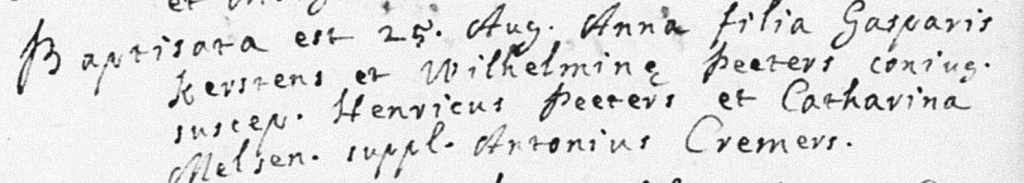 Baptisata est 25. Aug. Anna filia Gasparis
Kerstens et Wilhelminę Peeters coniug.
suscep. Henricus Peeters et Catharina
Melsen. suppl. Antonius Cremers.